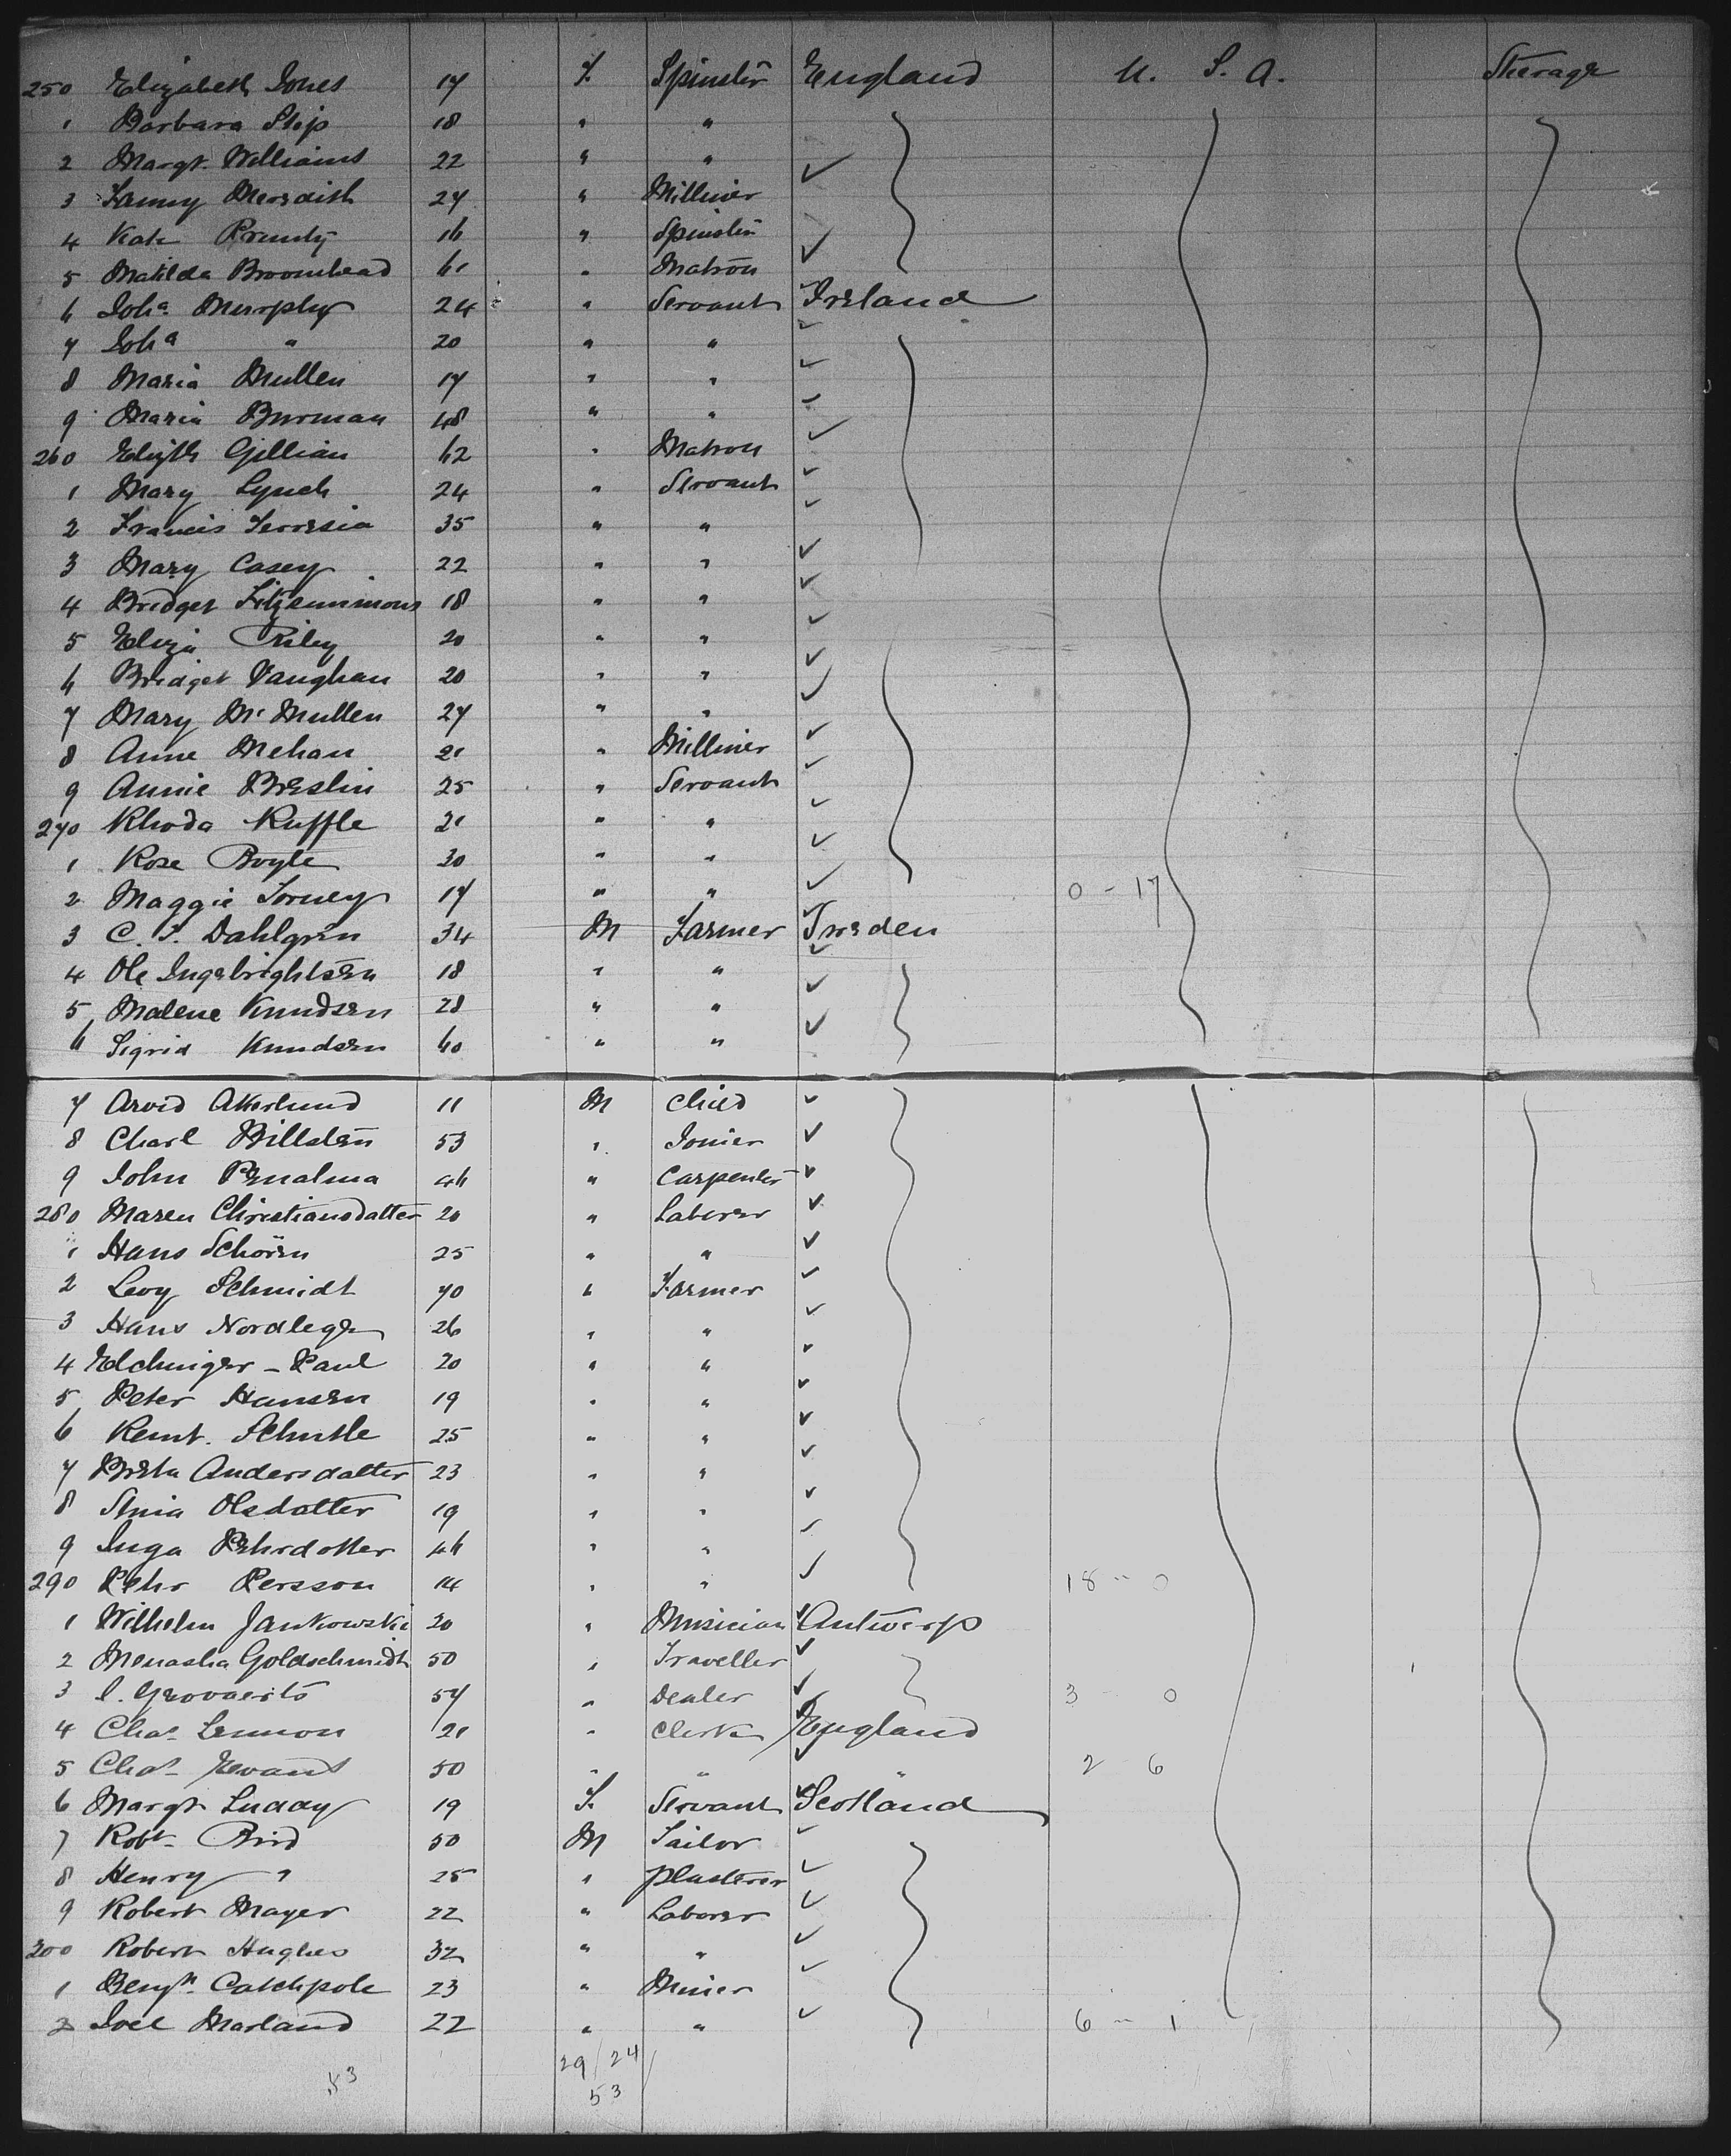 250 Elizabeth Jones 17 F. Spinster England U. S. A. Steerage
1 Barbara Slip 18 " "
2 Margt. Williams 22 " "
3 Fanny Meredith 27 " Milliner
4 Kate Prunty 16 " Spinster
5 Matilda Broomhead 61 " Matron
6 Joha. Murphy 24 " Servant Ireland
7 Joha " 20 " "
8 Maria Mullen 17 " "
9 Maria Burman 48 " "
260 Elizth Gillian 62 " Matron
1 Mary Lynch 24 " Servant
2 Francis 35 " "
3 Mary Casey 22 " "
4 Bridget Fitzsimmons 18 " "
5 Eliza Riley 20 " "
6 Bridget Vaughan 20 " "
7 Mary McMullen 27 " "
8 Anne Mehan 21 " Milliner
9 Annie Breslin 25 " Servant
270 Rhoda Ruffle 21 " "
1 Rose Boyle 30 " "
2 Maggie Torney 17 " " 0 - 17
3 C. F. Dahlgren 34 M Farmer Sweden
4 Ole Ingebrightsen 18 " "
5 Malene Knudsen 28 " "
6 Sigrid Knudsen 60 " "
7 Arvid Akerlund 11 M Child
8 Charl Billsten 53 " Joiner
9 John Penalma 46 " Carpenter
280 Maren Christiansdatter 20 " Laborer
1 Hans Schöien 25 " "
2 Levy Schmidt 70 " Farmer
3 Hans Nordlege 26 " "
4 Elchinger - Paul 20 " "
5 Peter Hansen 19 " "
6 Kent. 25 " "
7 Andersdatter 23 " "
8 Stina Olsdatter 19 " "
9 Inga Pehrdotter 46 " "
290 Pehr Persson 14 " " 18 - 0
1 Wilhelm Jankowski 20 " Musician Antwerp
2 Menasha Goldschmidt 50 " Traveller
3 Govaerts 57 " Dealer 3 - 0
4 Chas. Lennon 21 " Clerk England
5 Chas. Evans 50 " " " 2 - 6
6 Margt Luddy 19 F. Servant Scotland
7 Robt. Bird 50 M Tailor
8 Henry " 25 " Plasterer
9 Robert Mayer 22 " Laborer
300 Robert Hughes 32 " "
1 Benjn. Catchpole 23 " Miner
2 Joel Marland 22 " " 6 - 1
53 29/24/
53